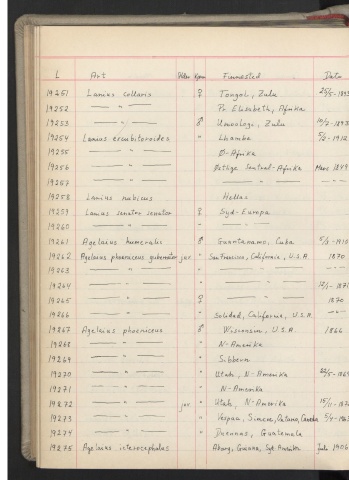 L Art Alder Kjønn Finnested Dato
19251 Lanius collaris ♀ Tongol, Zulu 25/5-1893
19252 — " — Pr Elisabeth, Afrika
19253 — " — ♂ Umvologi, Zulu 10/7-1893
19254 Lanius excubitoroides " Lkamba 5/2-1912
19255 — " — Ø-Afrika
19256 — " — Østlige Sentral-Afrika Mars 1849
19257 — " — — " —
19258 Lanius nubicus Hellas
19259 Lanius senator senator ♀ Syd-Europa
19260 — " — " —
19261 Agelaius humeralis ♂ Guantanamo, Cuba 5/3-1910
19262 Agelaius phoeniceus gubernator juv " San Francisco, California, U.S.A 1870
19263 — " — " — " — — " —
19264 — " — " — " — 12/1-187
19265 — " — ♀ — " — 1870
19266 — " — " Soledad, California, U.S.A. — " —
19267 Agelaius phoeniceus ♂ Wisconsin, U.S.A. 1866
19268 — " — " N-Amerika
19269 — " — "
19270 — " — " Utah, N-Amerika 22/5-1869
19271 — " — " N-Amerika
19272 — " — juv " Utah, N-Amerika 15/11-187
19273 — " — " 5/4-196
19274 — " — " Duennas, Guatemala
19275 Agelaius icterocephalus Syd-Amerika Juli 1906